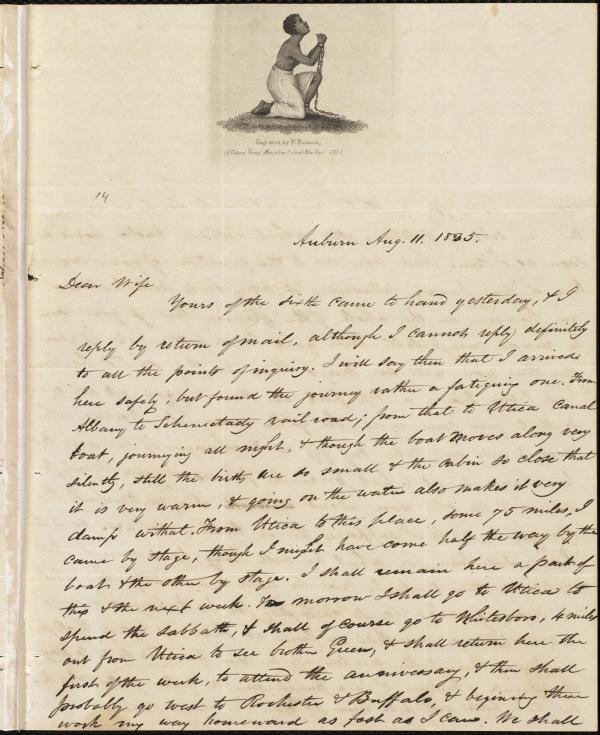 Engraved by P. Reason,
A Colored Young Man of the City of New York 1835
14
Auburn Aug. 11. 1835.
Dear Wife
Yours of the sixth came to hand yesterday, & I
reply by return of mail, although I cannot reply definitely
to all the points of inquiry. I will say then that I arrived
here safely, but found the journey rather a fatiguing one. From
Albany to Schenectady rail road; from that to Utica Canal
boat, journeying all night, & though the boat moves along very
silently, still the births are so small & the cabin so close that
it is very warm, & going on the water also makes it very
damp withal. From Utica to this place, some 75 miles, I
came by stage, though I might have come half the way by the
boat & the other by stage. I shall remain here a part of
this & the next week. To morrow I shall go to Utica to
spend the sabbath, & shall of course go to Whitesboro, 4 miles
out from Utica to see brother Green, & shall return here the
first of the week, to attend the anniversary, & then shall
probably go west to Rochester & Buffalo, & beginning there
work my way homeward as fast as I can. We shall